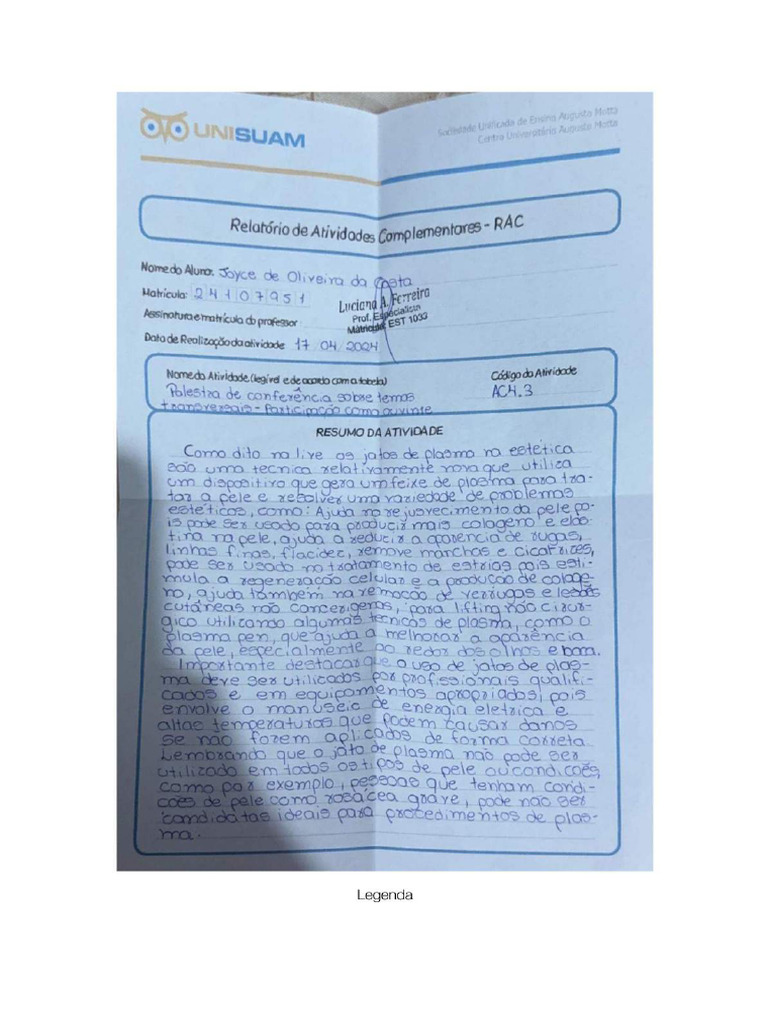 UNISUAM
Sociedade Unificada de Ensino Augusto Motta
Centro Universitário Augusto Motta
Relatório de Atividades Complementares - RAC
Nome do Aluno: Joyce de Oliveira da Costa
Matrícula: 24107951
Luciana A. Ferreira
Prof. Especialista
Matrícula: EST 1030
Assinatura e matrícula do professor
Data de Realização da atividade 17 04 2024
Nome da Atividade (legível e de acordo com a tabela)
Código da Atividade
Palestra de conferência sobre temas
transversais - Participação como ouvinte
AC4.3
RESUMO DA ATIVIDADE
Como dito na live os jatos de plasma na estética
são uma tecnica relativamente nova que utiliza
um dispositivo que gera um feixe de plasma para tra-
tar a pele e resolver uma variedade de problemas
estéticos, como: Ajuda no rejuvescimento da pele po-
is pode ser usado para producir mais colageno e elas-
tina na pele, ajuda a reducir a aparência de rugas,
linhas finas, flacidez, remove manchas e cicatrizes,
pode ser usado no tratamento de estrias pois esti-
mula a regeneração celular e a produção de colage-
no, ajuda também na remoção de verrugas e lesões
cutâneas não cancerigenas, para lifting não cirur-
gico utilizando algumas tecnicas de plasma, como o
plasma pen, que ajuda a melhorar a aparência
da pele, especialmente ao redor dos olhos e boca.
Importante destacar que o uso de jatos de plas-
ma deve ser utilizados por profissionais qualifi-
cados e em equipamentos apropriados, pois
envolve o manuseio de energia eletrica e
altas temperaturas que podem causar danos
se não forem aplicados de forma correta.
Lembrando que o jato de plasma não pode ser
utilizado em todos os tipos de pele ou condições,
como por exemplo, pessoas que tenham condi-
ções de pele como rosácea grave, pode não ser
candidatas ideais para procedimentos de plas-
ma.
Legenda